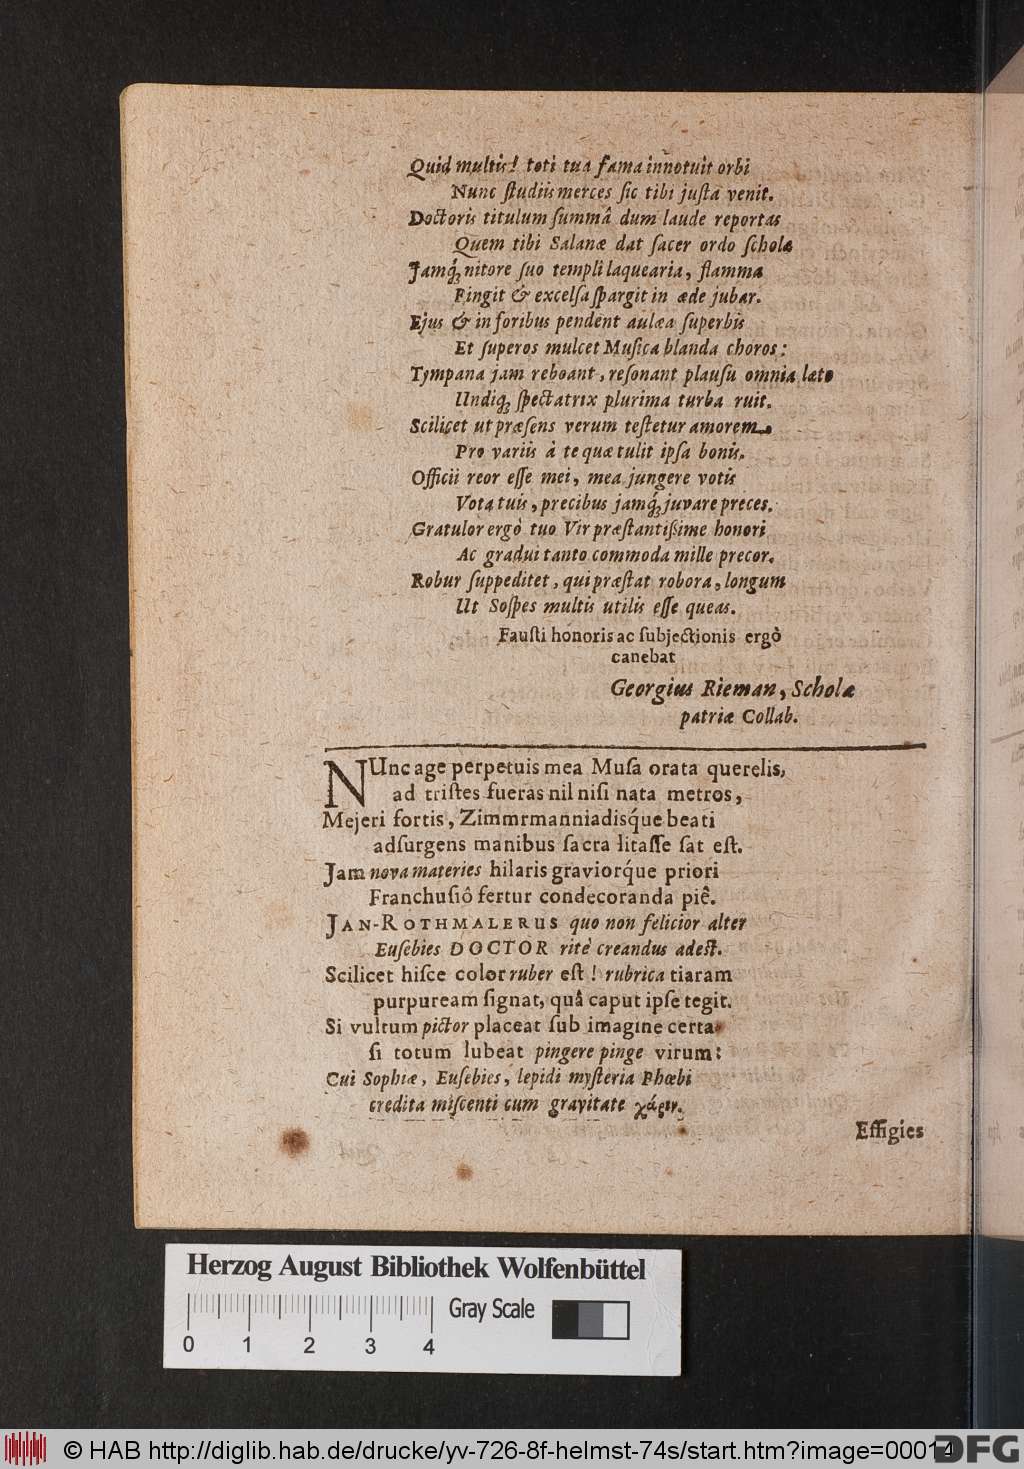 Quid multis! toti tua fama innotuit orbi
Nunc ſtudiis merces ſic tibi juſta venit.
Doctoris titulum ſummâ dum laude reportas
Quem tibi Salanæ dat ſacer ordo ſcholæ
Jamq́; nitore ſuo templi laquearia, flamma
Pingit & excelſa ſpargit in æde jubar.
Ejus & in foribus pendent aulæa ſuperbis
Et ſuperos mulcet Muſica blanda choros:
Tympana jam reboant, reſonant plauſu omnia læto
Undiq; ſpectatrix plurima turba ruit.
Scilicet ut præſens verum teſtetur amorem
Pro variis à te quæ tulit ipſa bonis.
Officii reor eſſe mei, mea jungere votis
Vota tuis, precibus jamq́; juvare preces.
Gratulor ergò tuo Vir præſtantiſſime honori
Ac gradui tanto commoda mille precor.
Robur ſuppeditet, qui præſtat robora, longum
Ut Soſpes multis utilis eſſe queas.
Fauſti honoris ac ſubjectionis ergò
canebat
Georgius Rieman, Scholæ
patriæ Collab.
NUnc age perpetuis mea Muſa orata querelis,
ad triſtes fueras nil niſi nata metros,
Mejeri fortis, Zimmrmanniadisq́ue beati
adſurgens manibus ſacra litaſſe ſat eſt.
Jam nova materies hilaris graviorq́ue priori
Franchuſiô fertur condecoranda piê.
JAN-ROTHMALERUS quo non felicior alter
Euſebies DOCTOR ritè creandus adeſt.
Scilicet hiſce color ruber eſt! rubrica tiaram
purpuream ſignat, quâ caput ipſe tegit.
Si vultum pictor placeat ſub imagine certa
ſi totum lubeat pingere pinge virum:
Cui Sophiæ, Euſebies, lepidi myſteria Phœbi
credita miſcenti cum gravitate χάριν.
Effigies
Herzog August Bibliothek Wolfenbüttel
Gray Scale
0 1 2 3 4
© HAB http://diglib.hab.de/drucke/yv-726-8f-helmst-74s/start.htm?image=00014
DFG